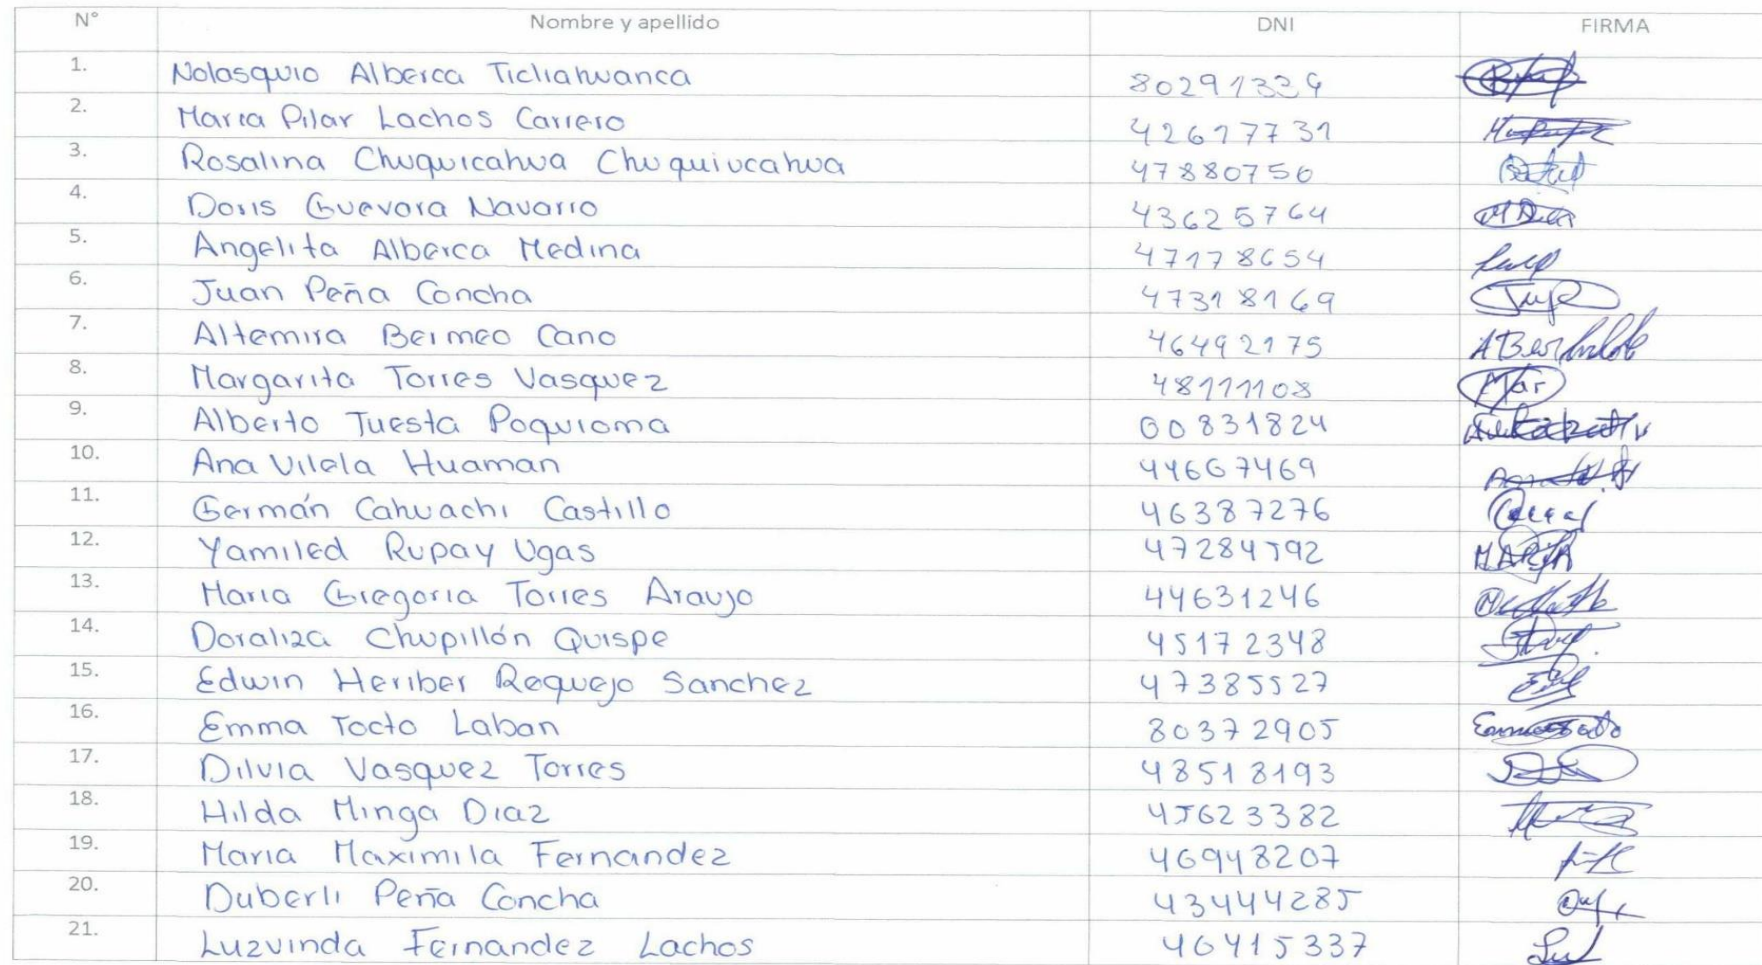 N° Nombre y apellido DNI FIRMA
1. Nolasquio Alberca Ticliahuanca 80291339
2. Maria Pilar Lachos Carrero 42617731
3. Rosalina Chuquicahua Chuquiucahua 47880756
4. Doris Guevara Navarro 43625764
5. Angelita Alberca Medina 47178654
6. Juan Peña Concha 47318169
7. Altemira Bermeo Cano 46492175
8. Margarita Torres Vasquez 48111108 Mar
9. Alberto Tuesta Poquioma 00831824
10. Ana Vilela Huaman 44667469
11. Germán Cahuachi Castillo 46387276
12. Yamiled Rupay Ugas 47284592
13. Maria Gregoria Torres Araujo 44631246
14. Doraliza Chupillón Quispe 45172348
15. Edwin Heriber Requejo Sanchez 47385527
16. Emma Tocto Laban 80372905
17. Dilvia Vasquez Torres 48518193
18. Hilda Minga Diaz 45623382
19. Maria Maximila Fernandez 46948207
20. Duberli Peña Concha 43444285
21. Luzvinda Fernandez Lachos 46415337